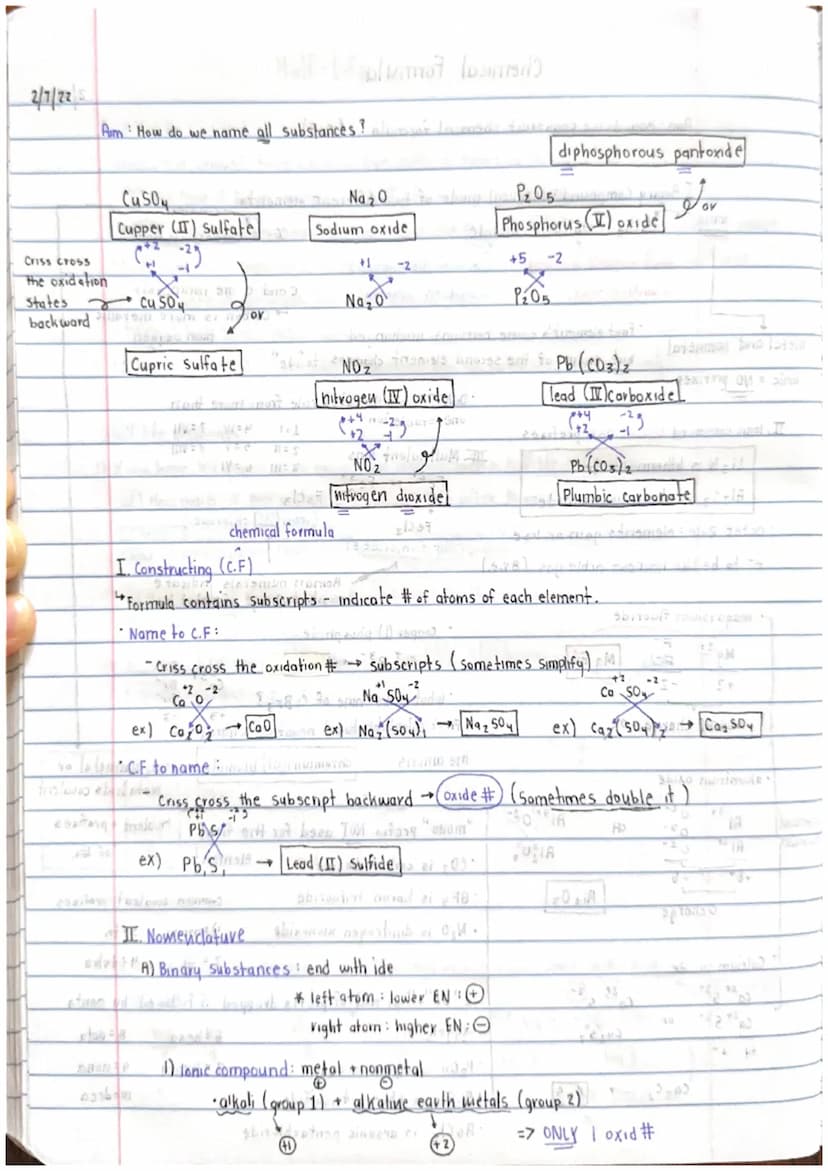 2/7/22
Aim: How do we name all substances?
diphosphorous pantoxide
CuSO4 Na2O P2O5 or
Cupper (II) Sulfate Sodium oxide Phosphorus (V) oxide
+2 -2
Criss cross +1 -1 +1 -2 +5 -2
the oxidation
states CuSO4 Na2O P2O5
backward or
Cupric Sulfate NO2 Pb(CO3)2
nitrogen (IV) oxide lead (IV) carboxide
+4 -2 +4 -2
+2 -1 +2 -1
NO2 Pb(CO3)2
nitrogen dioxide Plumbic carbonate
chemical formula
I. Constructing (C.F)
↳ Formula contains subscripts - indicate # of atoms of each element.
· Name to C.F:
- Criss cross the oxidation # → subscripts (sometimes simplify)
+2 -2 +1 -2 +2 -2
Ca O Na SO4 Ca SO4
ex) Ca2O2 → CaO ex) Na2(SO4)1 → Na2SO4 ex) Ca2(SO4)2 → Ca2SO4
· C.F to name:
- Criss cross the subscript backward → oxide # (sometimes double it)
Pb S
ex) Pb1S1 → Lead (II) Sulfide
II. Nomenclature
A) Binary Substances: end with ide
* left atom: lower EN: +
right atom: higher EN: -
1) Ionic compound: metal + nonmetal
+ -
· alkali (group 1) + alkaline earth metals (group 2)
+1 +2 => ONLY 1 oxid #